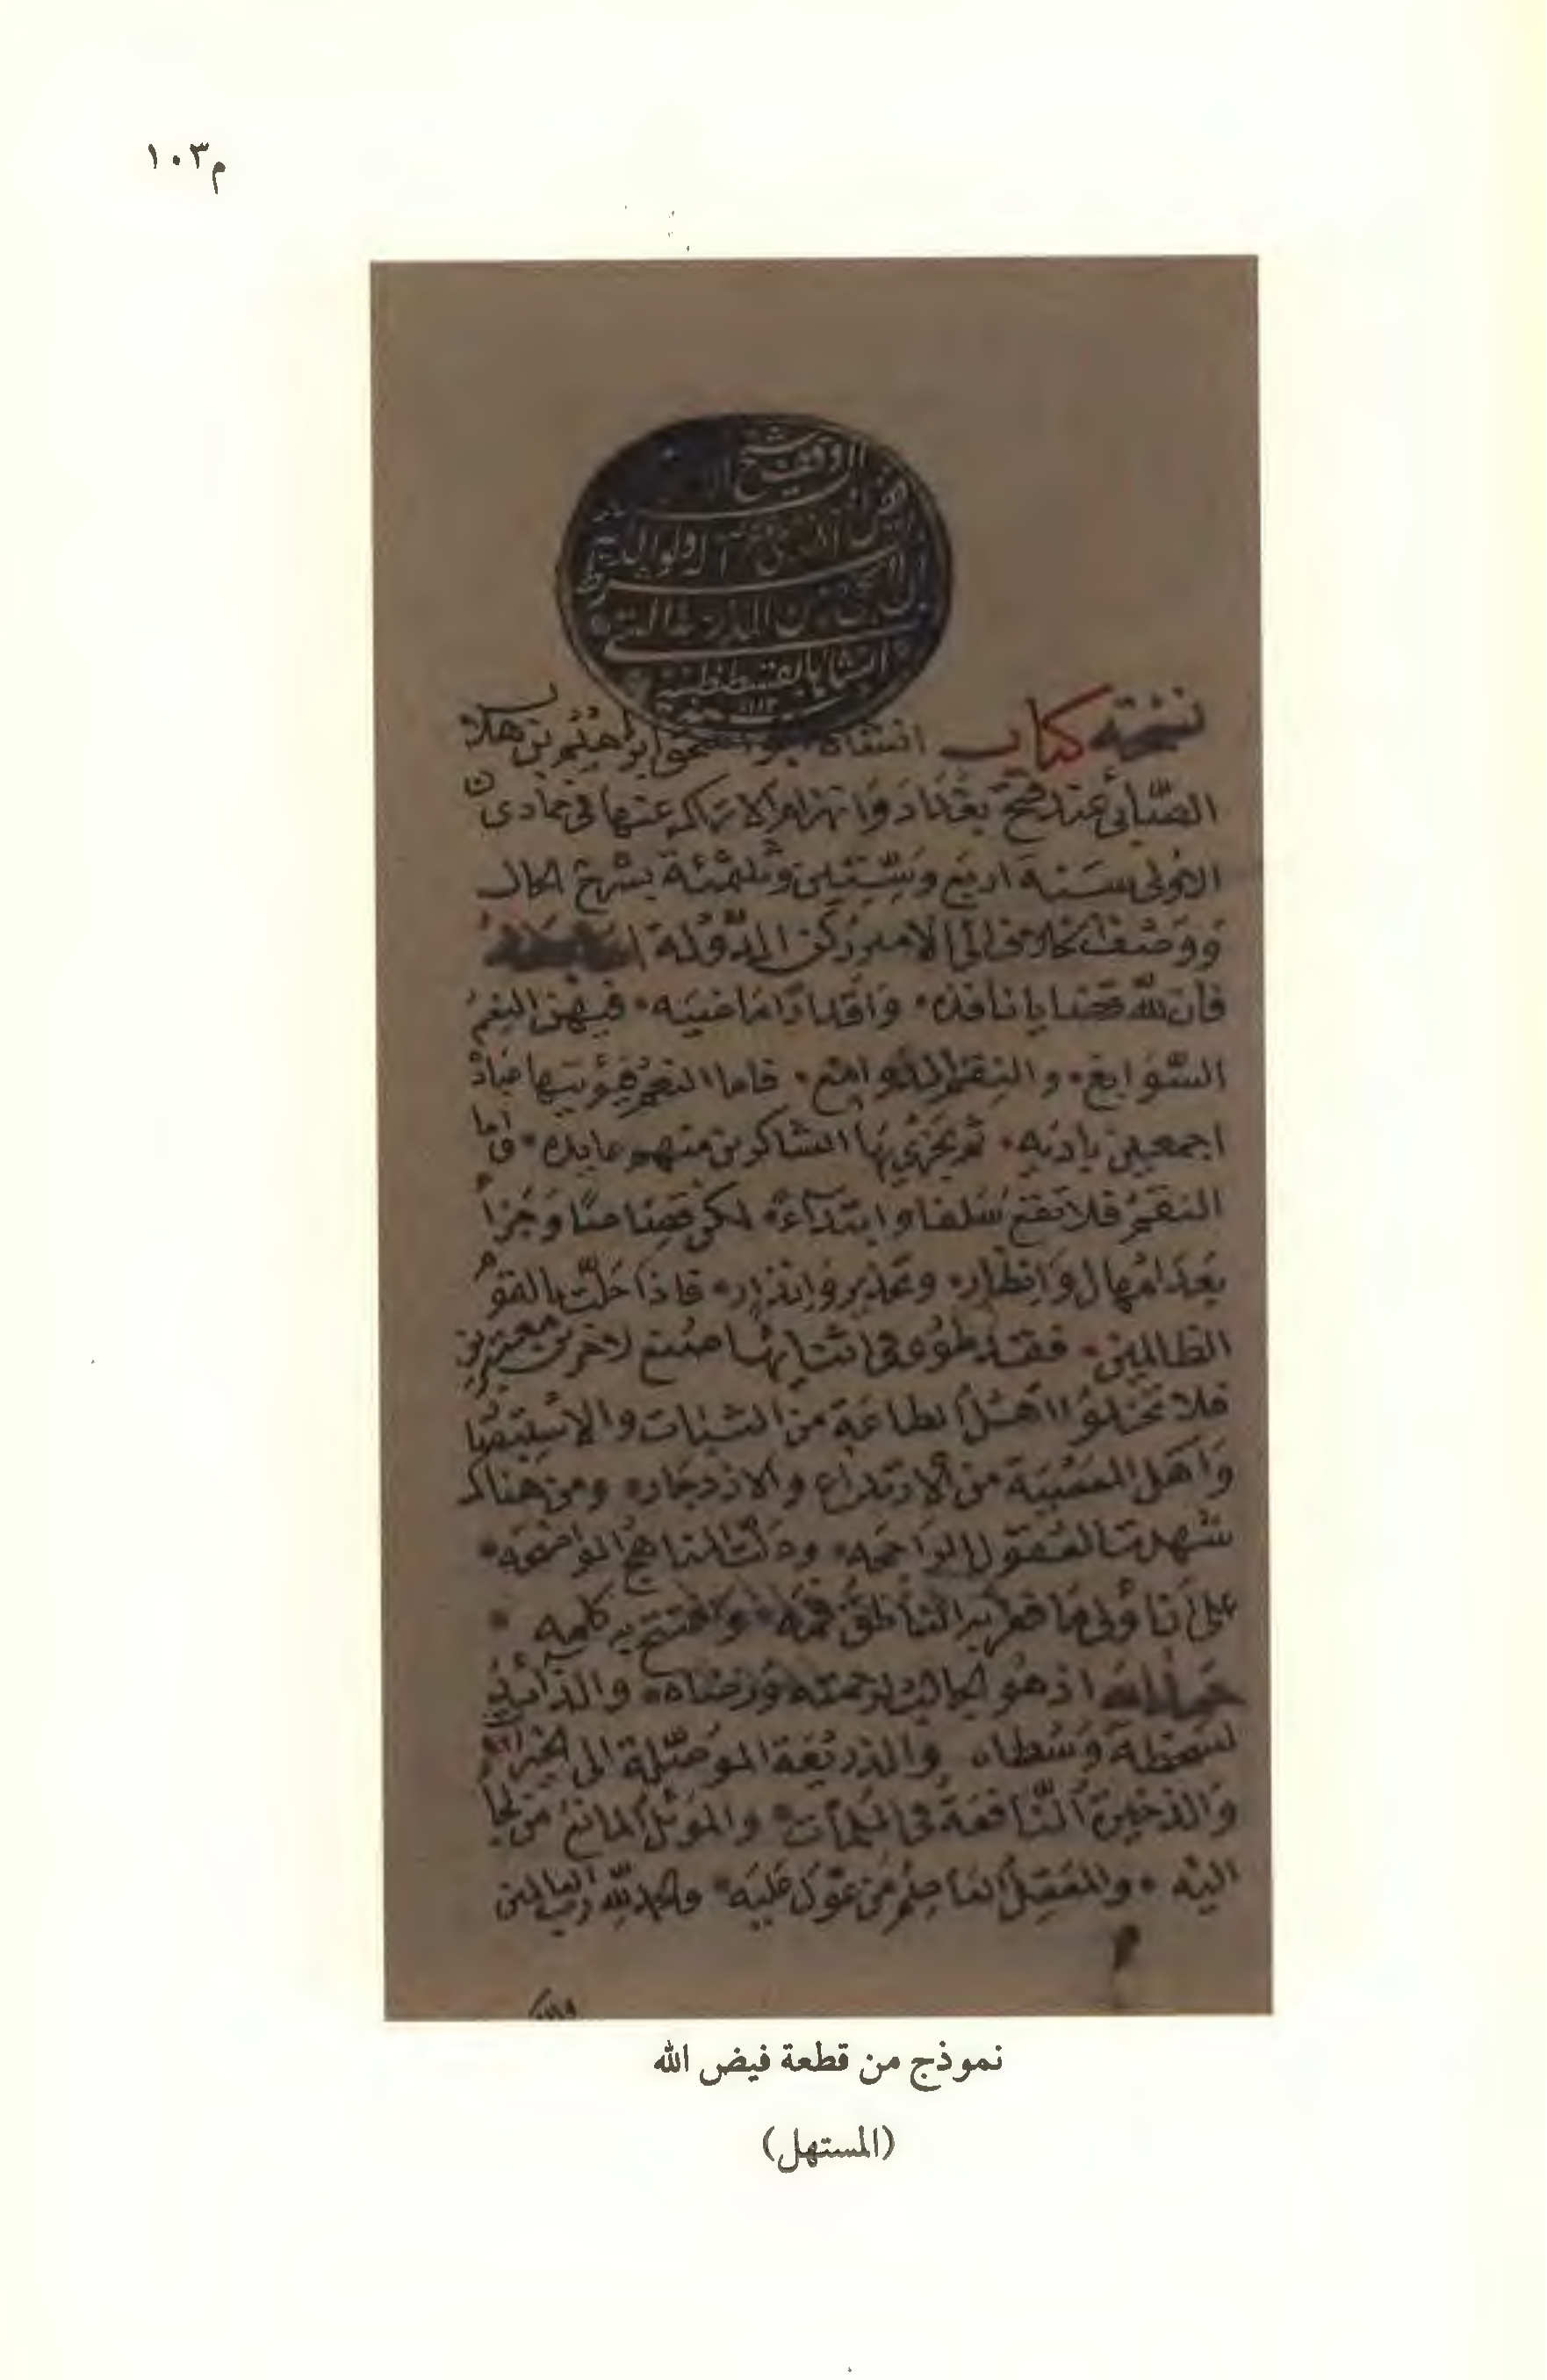 م١٠٣
وقف شيخ
انشاها بقسطنطينية
١١١٣
نسخة كتاب انشاه ابو اسحق ابراهيم بن هلال
الصَّابئ عند فتح بغداد وانهزام الاتراك عنها في جمادى
الاولى سنة اربع وستين وثلثمئة بشرح الحال
ووصف الى الامير ركن الدولة
فان لله قضايا نافذه وأقدارًا ماضيه فيهن النعم
السَّوابغ والنقم الدوامغ فاما النعم فيؤتيها عباده
اجمعين باديه ثم يجزي بها الشاكرين منهم عايده واما
النقم فلا تقع سلفا وابتداء لكن قصاصًا وجزاءً
بعد امهال وانظار وتحذير وانذار فاذا حلّت بالقوم
الظالمين فقد طوى في اثنائها صنع لاخرين معتبرين
فلا تخلو اهل الطاعة من الثبات والاستبقا
وأهل المعصية من الارتداع والازدجار ومن هناك
شهدت العقول الراجحه ودلّت المناهج الواضحه
على ان أولى ما فغر به الناطق فمه وافتتح به كلمه
حمد الله اذ هو الجالب لرحمته ورضاه والذائد
لسخطه وسطاه والذريعة الموصّلة الى الخيرات
والذخيرة النّافعة في الملمات والموئل المانع من لجا
اليه والمعقل العاصم من عوّل عليه والحمد لله رب العالمين
نموذج من قطعة فيض الله
(المستهل)